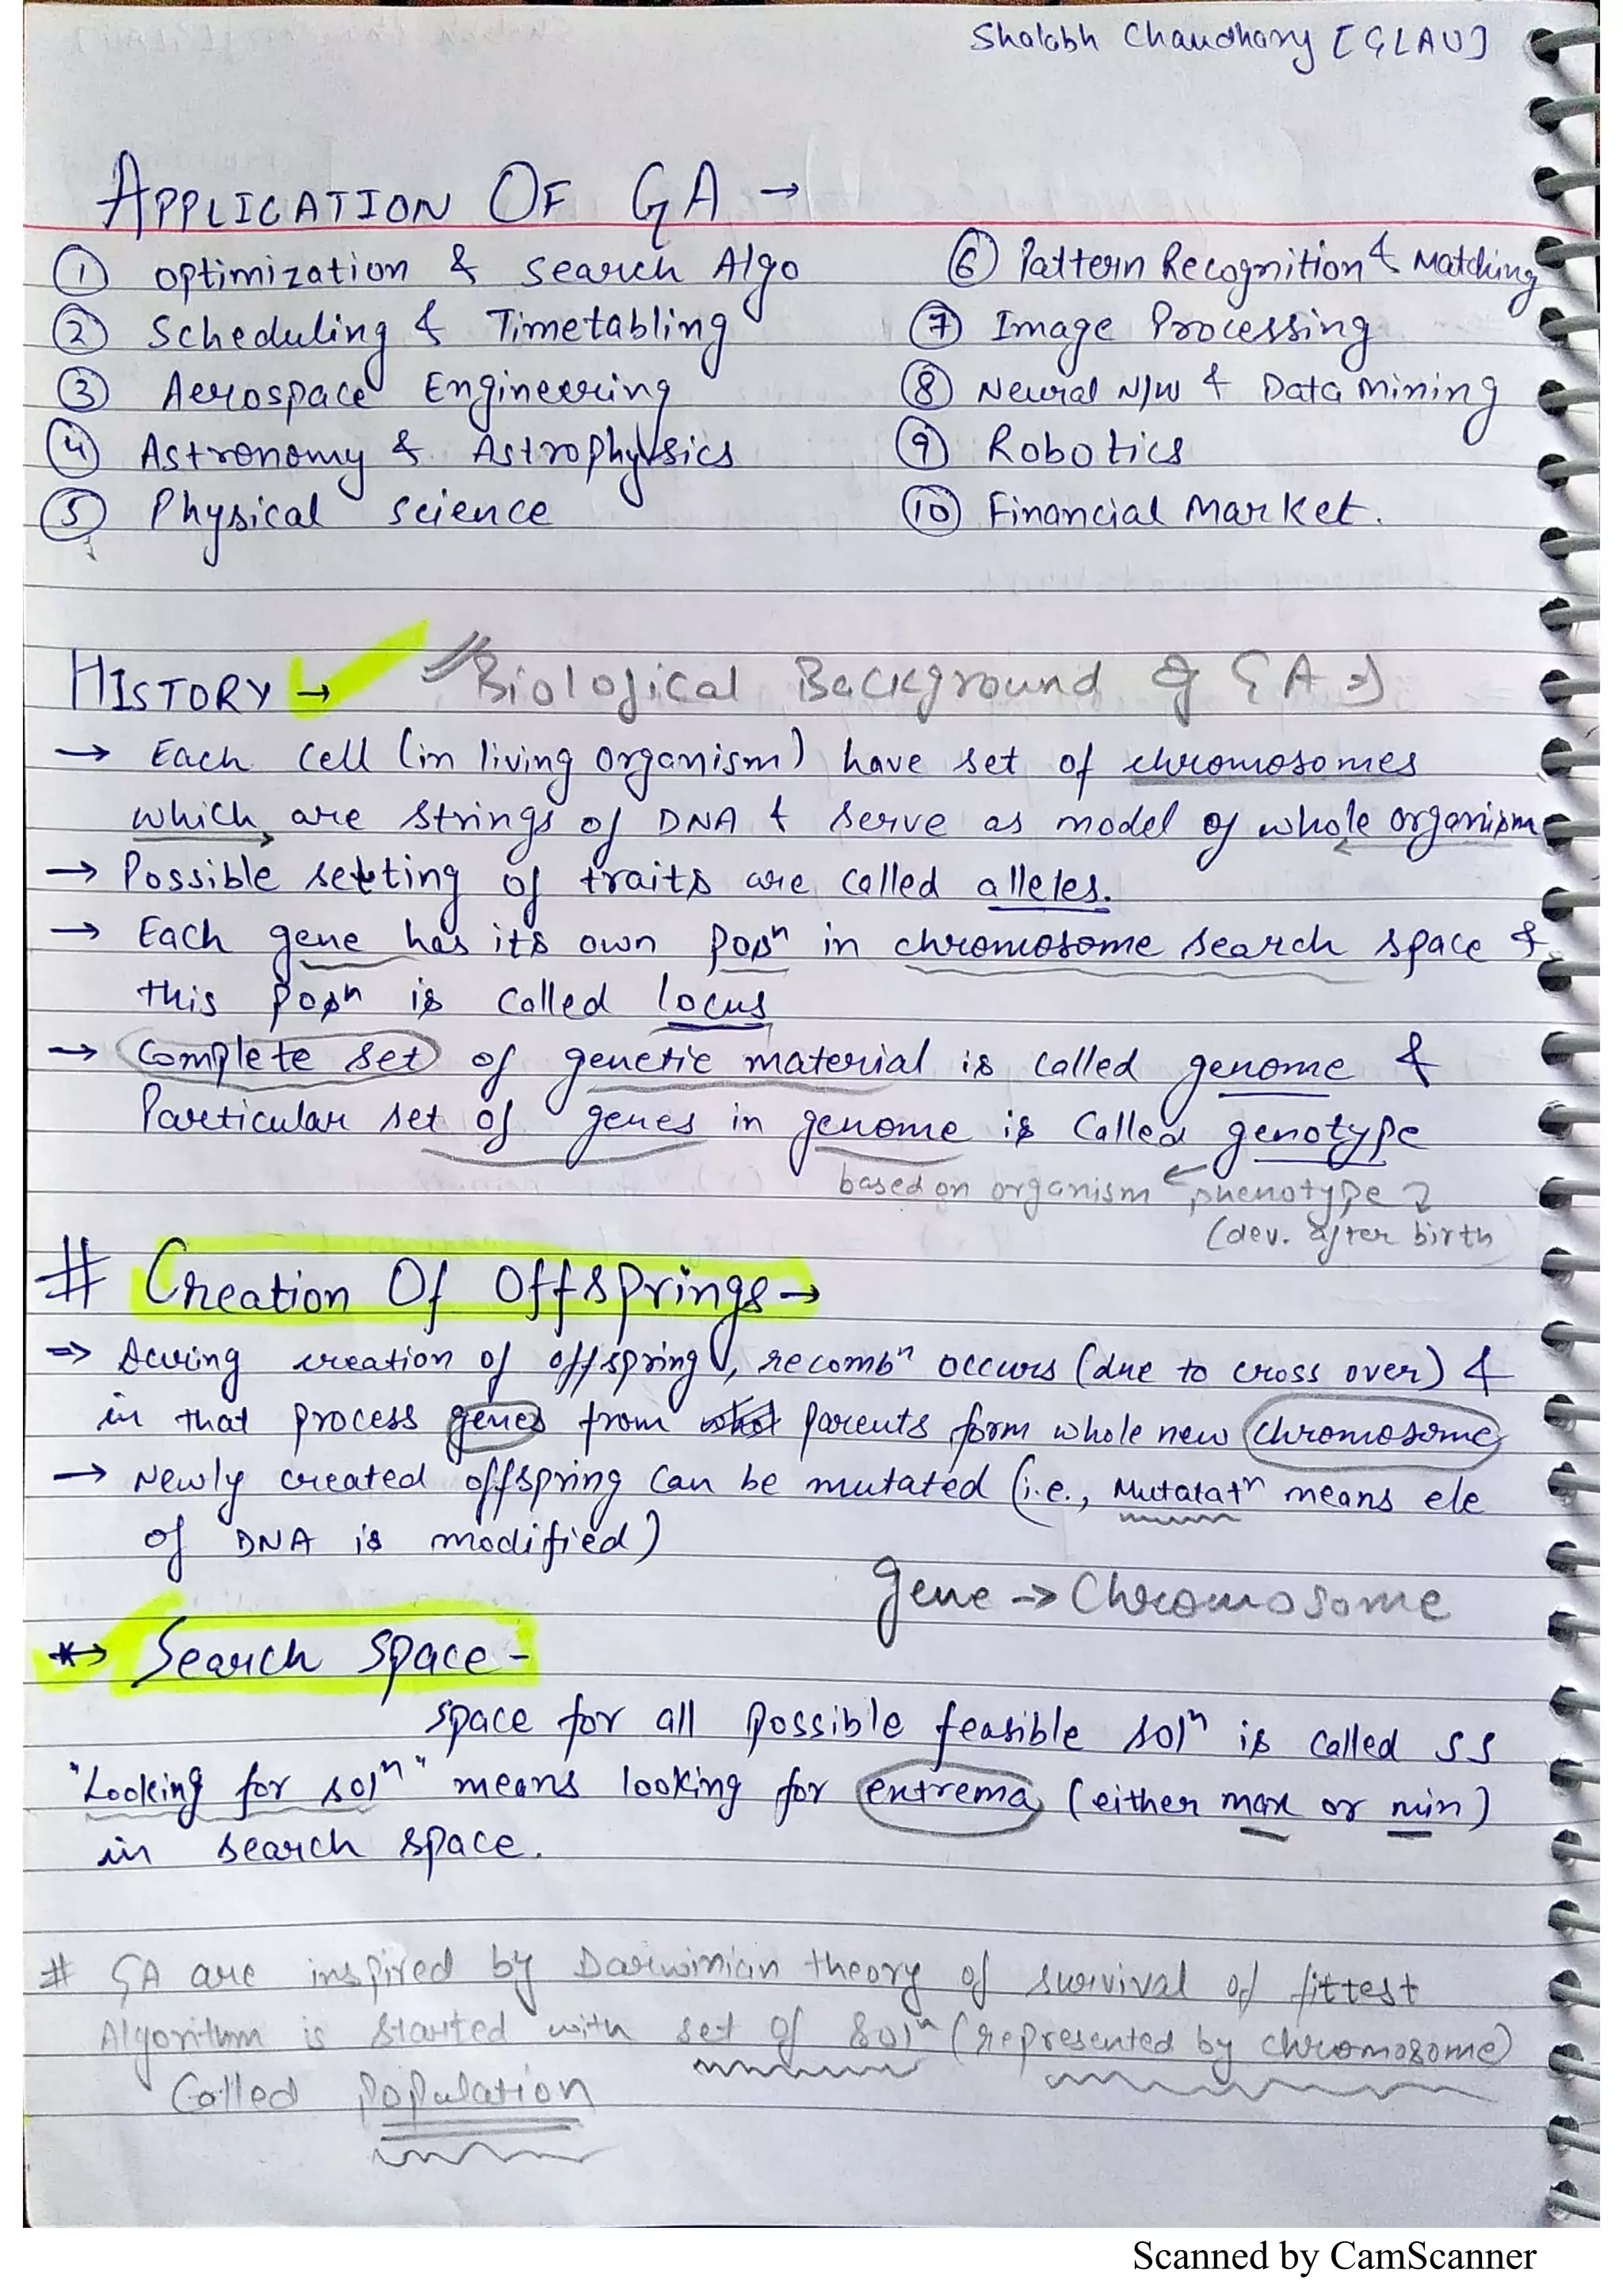 Shalabh Chaudhary [GLAU]
APPLICATION OF GA →
① Optimization & Search Algo
② Scheduling & Timetabling
③ Aerospace Engineering
④ Astronomy & Astrophysics
⑤ Physical Science
⑥ Pattern Recognition & Matching
⑦ Image Processing
⑧ Neural N/W & Data Mining
⑨ Robotics
⑩ Financial Market.
HISTORY →
Biological Background of GA →
→ Each cell (in living organism) have set of chromosomes
which are strings of DNA & serve as model of whole organism
→ Possible setting of traits are called alleles.
→ Each gene has its own posⁿ in chromosome search space &
this posⁿ is called locus
→ Complete set of genetic material is called genome &
Particular set of genes in genome is called genotype
based on organism ← phenotype
(dev. after birth
# Creation Of Offsprings →
⇒ During creation of offspring, recombⁿ occurs (due to cross over) &
in that process genes from parents form whole new chromosome
→ Newly created offspring can be mutated (i.e., Mutatatⁿ means ele
of DNA is modified)
gene → Chromosome
*→ Search Space -
space for all possible feasible solⁿ is called SS
"Looking for solⁿ" means looking for extrema (either max or min)
in search space.
# GA are inspired by Darwinian theory of survival of fittest
Algorithm is started with set of solⁿ (represented by chromosome)
Called population
Scanned by CamScanner